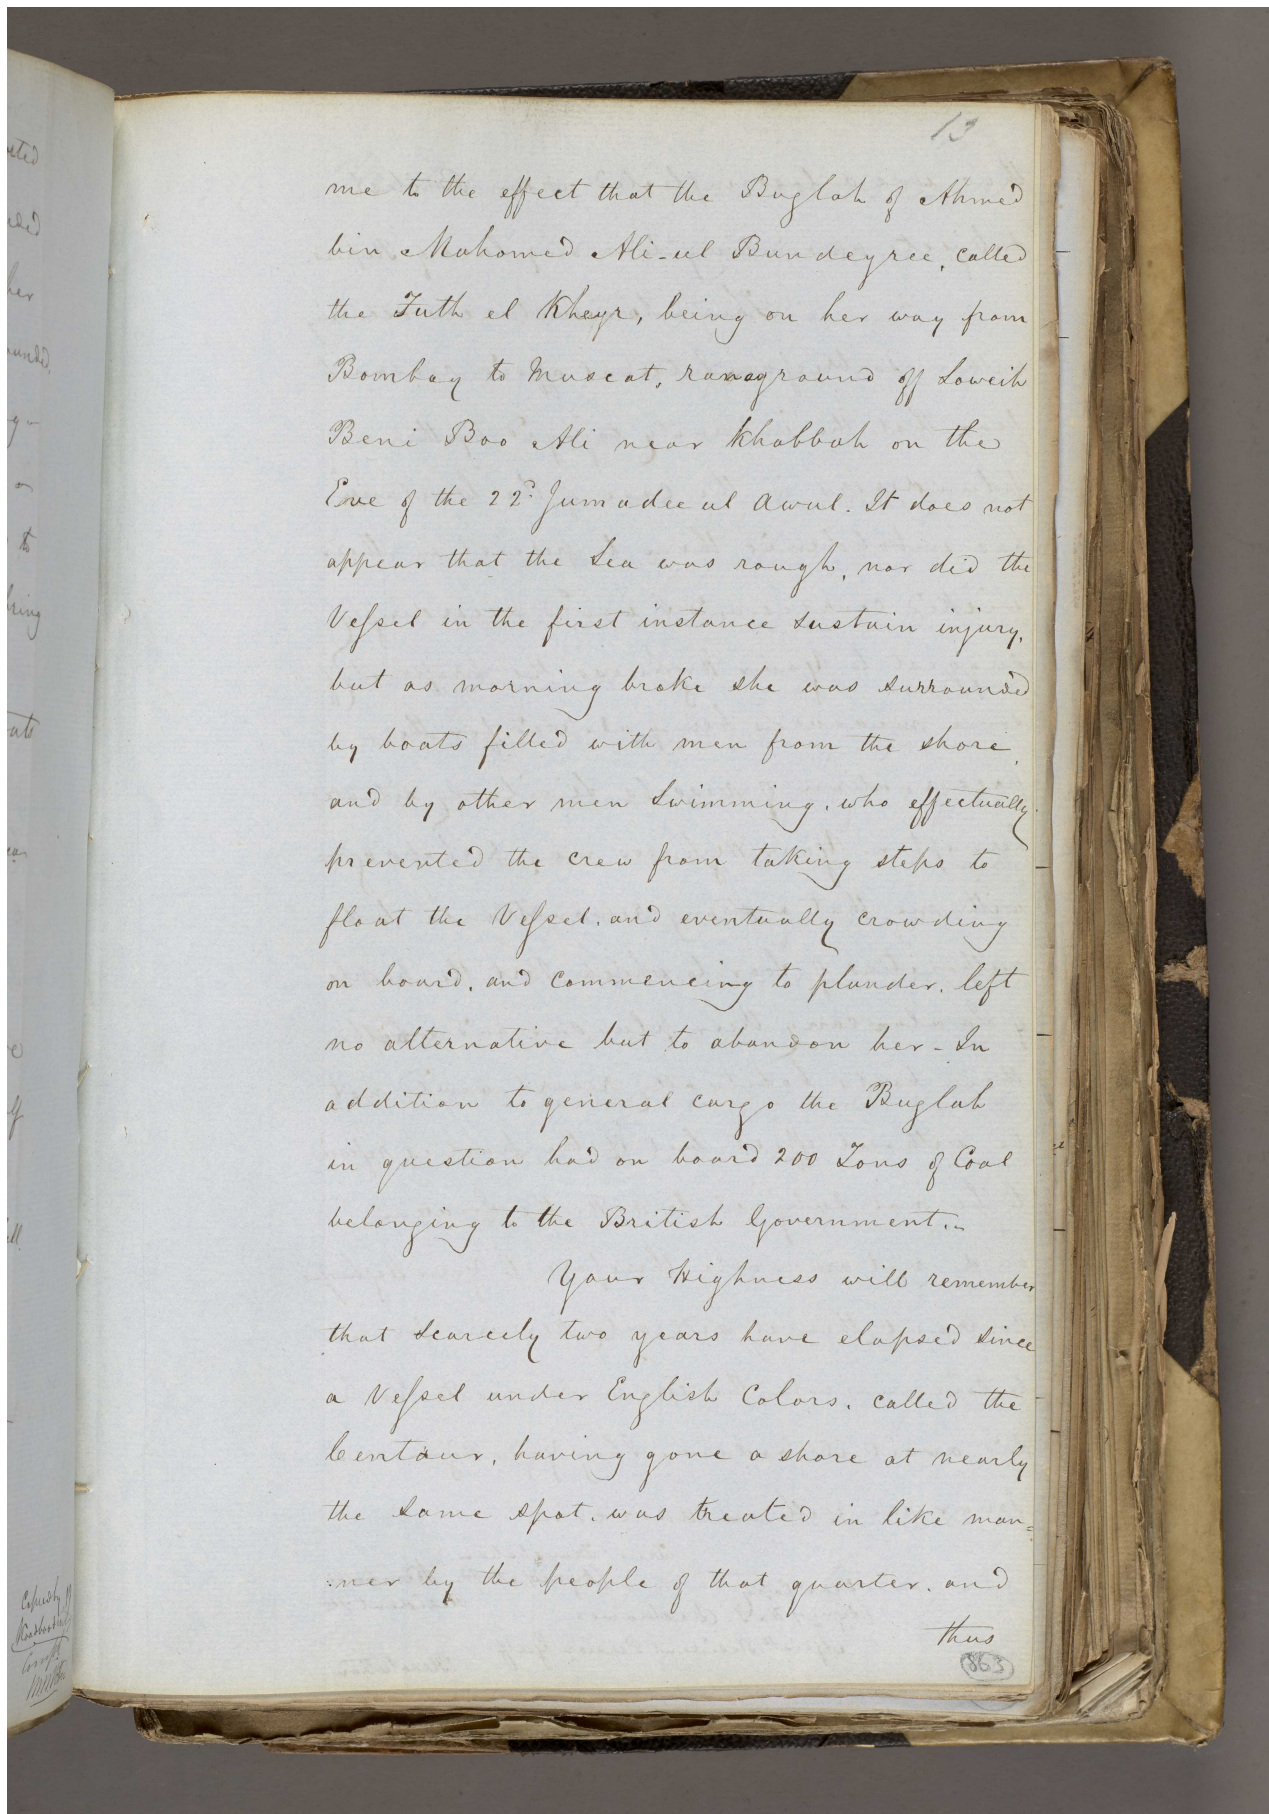 13
me to the effect that the Buglah of Ahmed
bin Mahomed Ali-ul Bundeyree, called
the Futh el Kheyr, being on her way from
Bombay to Muscat, ran aground off Soweih
Beni Boo Ali near Khabbah on the
Eve of the 22d. Jumadee ul Awul. It does not
appear that the Sea was rough, nor did the
Vessel in the first instance sustain injury,
but as morning broke she was surrounded
by boats filled with men from the shore,
and by other men Swimming, who effectually
prevented the crew from taking steps to
float the Vessel, and eventually crowding
on board, and commencing to plunder, left
no alternative but to abandon her - In
addition to general cargo the Buglah
in question had on board 200 Tons of Coal
belonging to the British Government..
Your Highness will remember
that scarcely two years have elapsed since
a Vessel under English Colors, called the
Centaur, having gone a shore at nearly
the same spot, was treated in like man=
:ner by the people of that quarter, and
thus
863